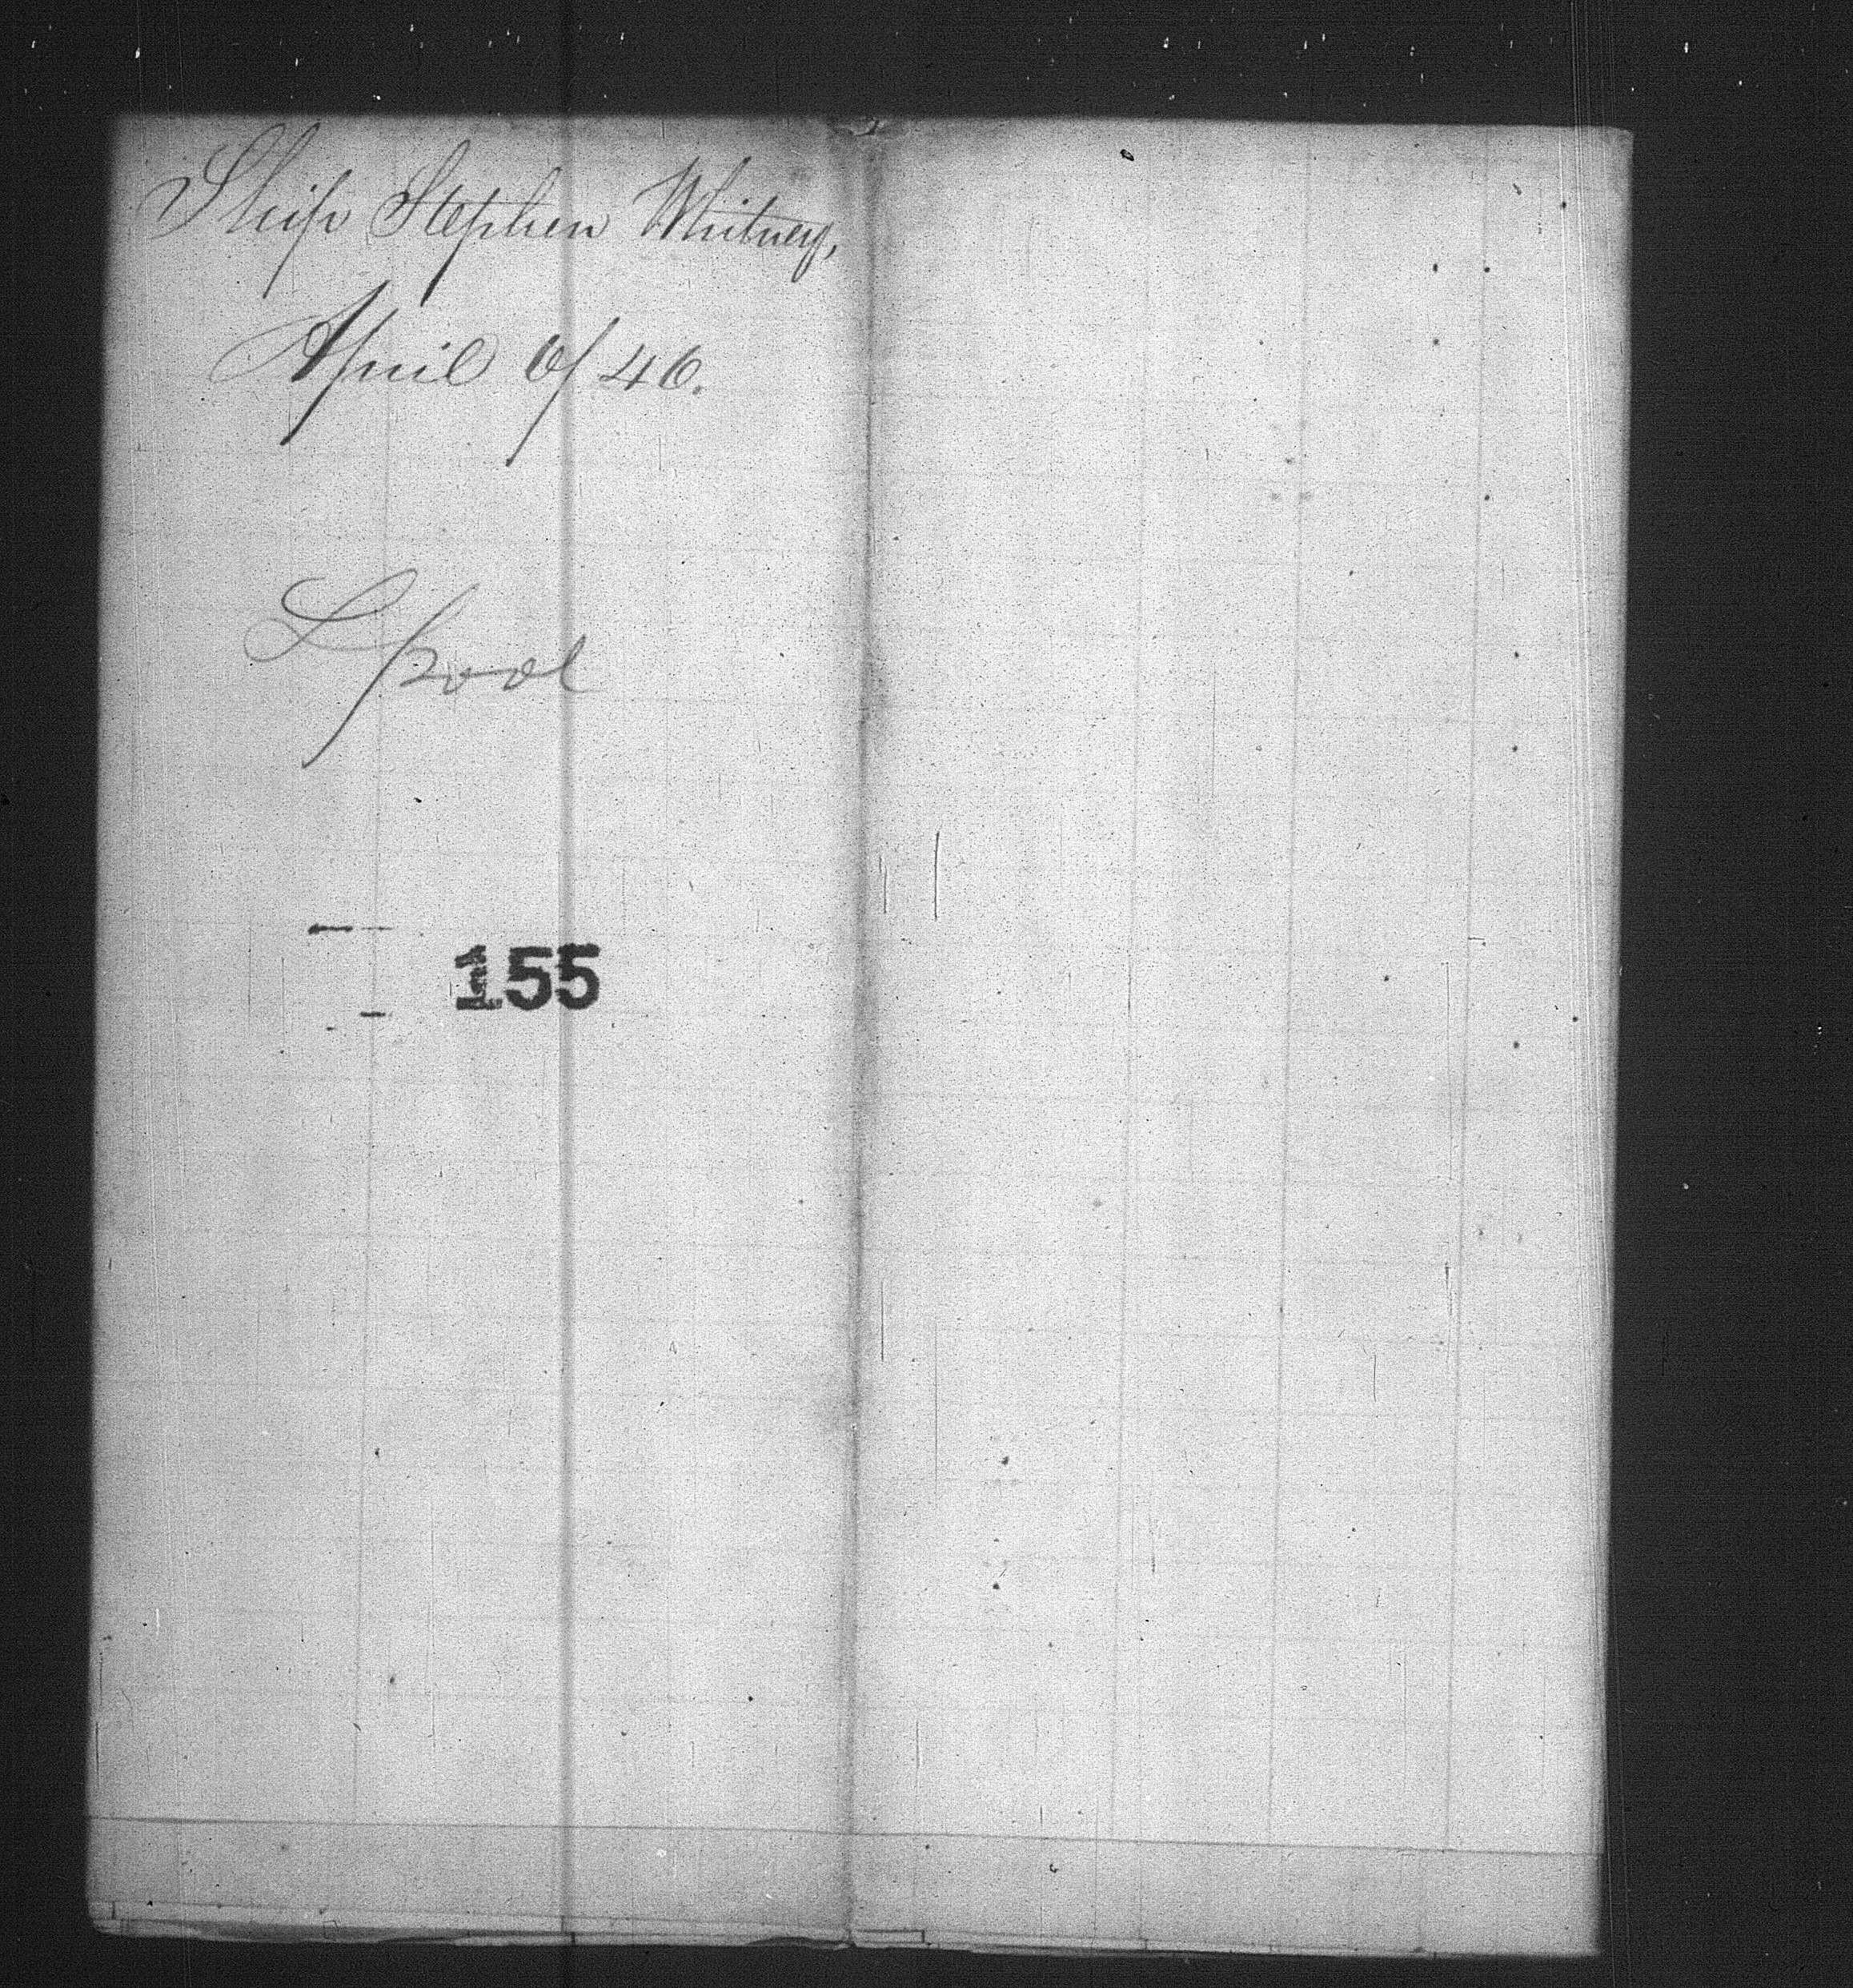 Ship Stephen Whitney,
April 6/46.
Lpool
155